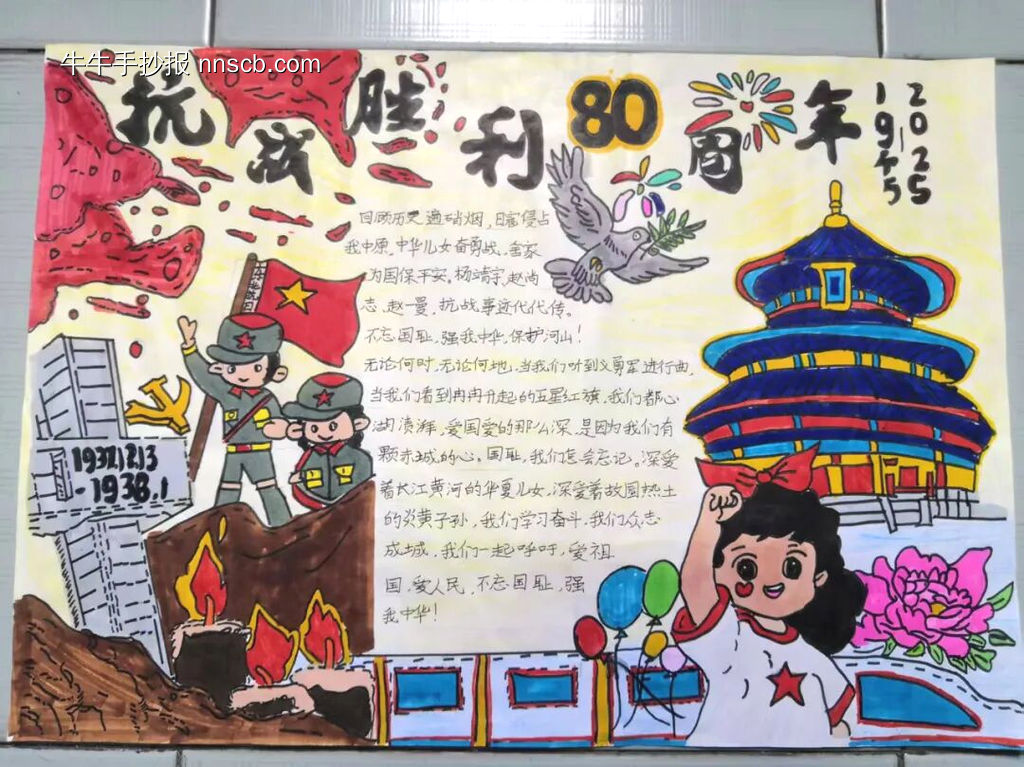 牛牛手抄报 nnscb.com
抗战胜利80周年
1945
-
2025
回顾历史遍硝烟,日寇侵占
我中原。中华儿女奋勇战,舍家
为国保平安。杨靖宇,赵尚
志,赵一曼,抗战事迹代代传。
不忘国耻,强我中华,保护河山!
无论何时,无论何地,当我们听到义勇军进行曲,
当我们看到冉冉升起的五星红旗,我们都心
潮澎湃,爱国爱的那么深,是因为我们有
颗赤城的心。国耻,我们怎会忘记。深爱
着长江黄河的华夏儿女,深爱着故园热土
的炎黄子孙,我们学习奋斗,我们众志
成城,我们一起呼吁,爱祖
国,爱人民,不忘国耻,强
我中华!
1937.12.13
-1938.1